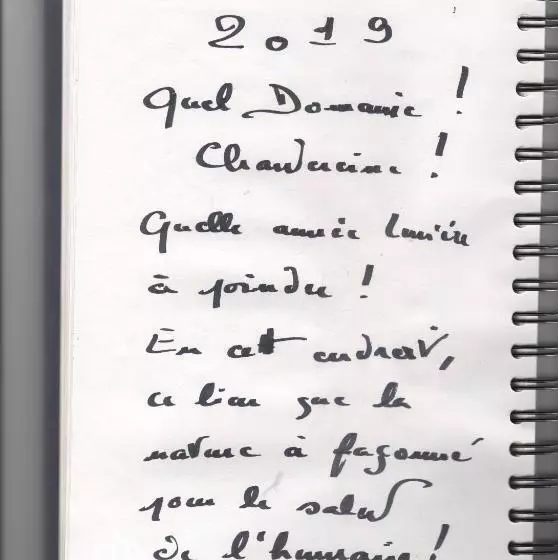 2019
Quel Domaine !
Chaudecine !
Quelle année lumière
à joindre !
En cet endroit,
ce lieu que la
nature à façonné
pour le salut
de l'humain !